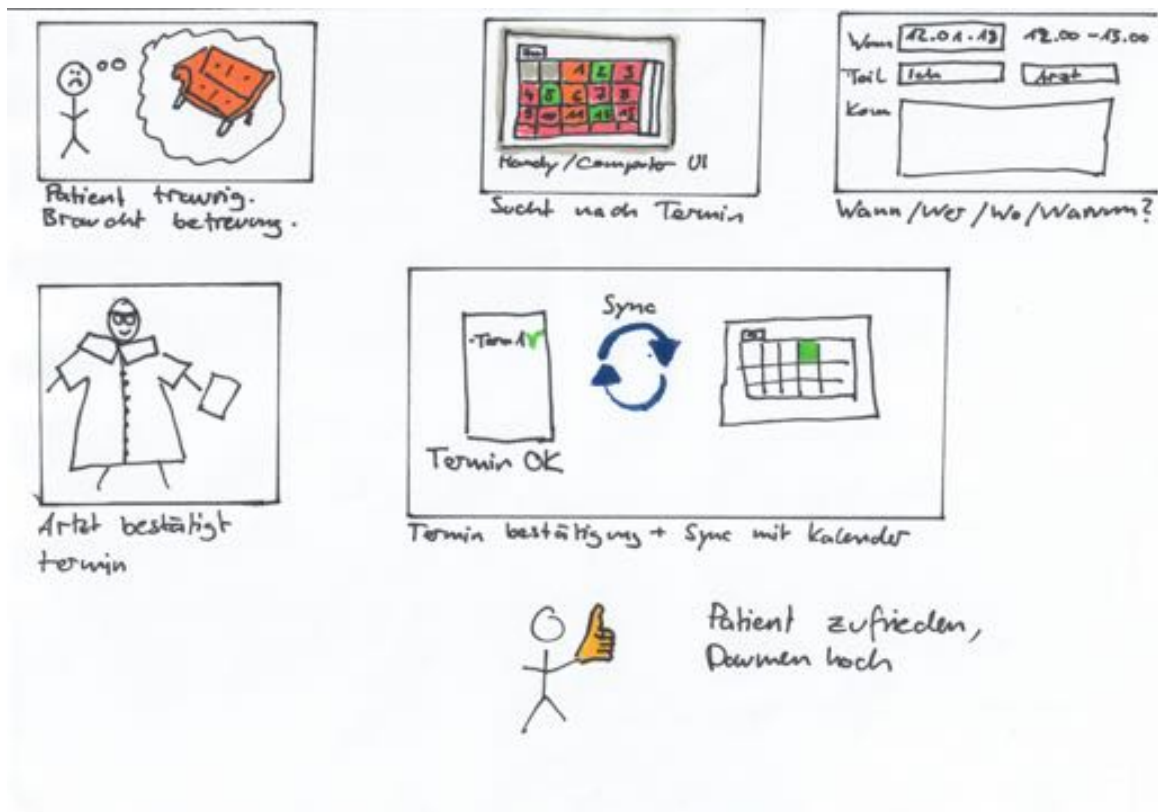 Patient traurig.
Braucht betreuung.
1 2 3
4 5 6 7 8
9 10 11 12 13
Handy/Computer UI
Sucht nach Termin
Wann 12.01.18 12.00-13.00
Teil Ich Arzt
Kom
Wann/Wer/Wo/Warum?
Artzt bestätigt
termin
Sync
Termin OK
Termin bestätigung + Sync mit Kalender
Patient zufrieden,
Daumen hoch